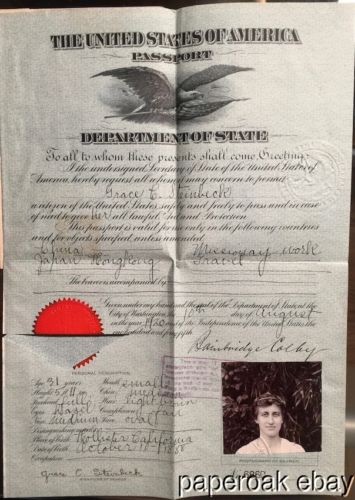 THE UNITED STATES OF AMERICA
PASSPORT
DEPARTMENT OF STATE
To all to whom these presents shall come, Greeting:
I the undersigned Secretary of State of the United States of
America, hereby request all whom it may concern to permit
Grace E. Steinbeck
a citizen of the United States safely and freely to pass and in case
of need to give her all lawful Aid and Protection.
This passport is valid for use only in the following countries
and for objects specified, unless amended.
China Missionary work
Japan Hongkong Travel
The bearer is accompanied by
Given under my hand and the seal of the Department of State at the
City of Washington, the 10th day of August
in the year 1920 and of the Independence of the United States the
one hundred and forty-fifth.
Bainbridge Colby
PERSONAL DESCRIPTION
Age 31 years Mouth small
Height 5 ft Chin medium
Forehead full Hair light brown
Eyes hazel Complexion fair
Nose medium Face oval
Distinguishing marks
Place of Birth Hollister, California
Date of Birth October 1888
Occupation
Grace E. Steinbeck
SIGNATURE OF BEARER
PHOTOGRAPH OF BEARER
No.
paperoak ebay